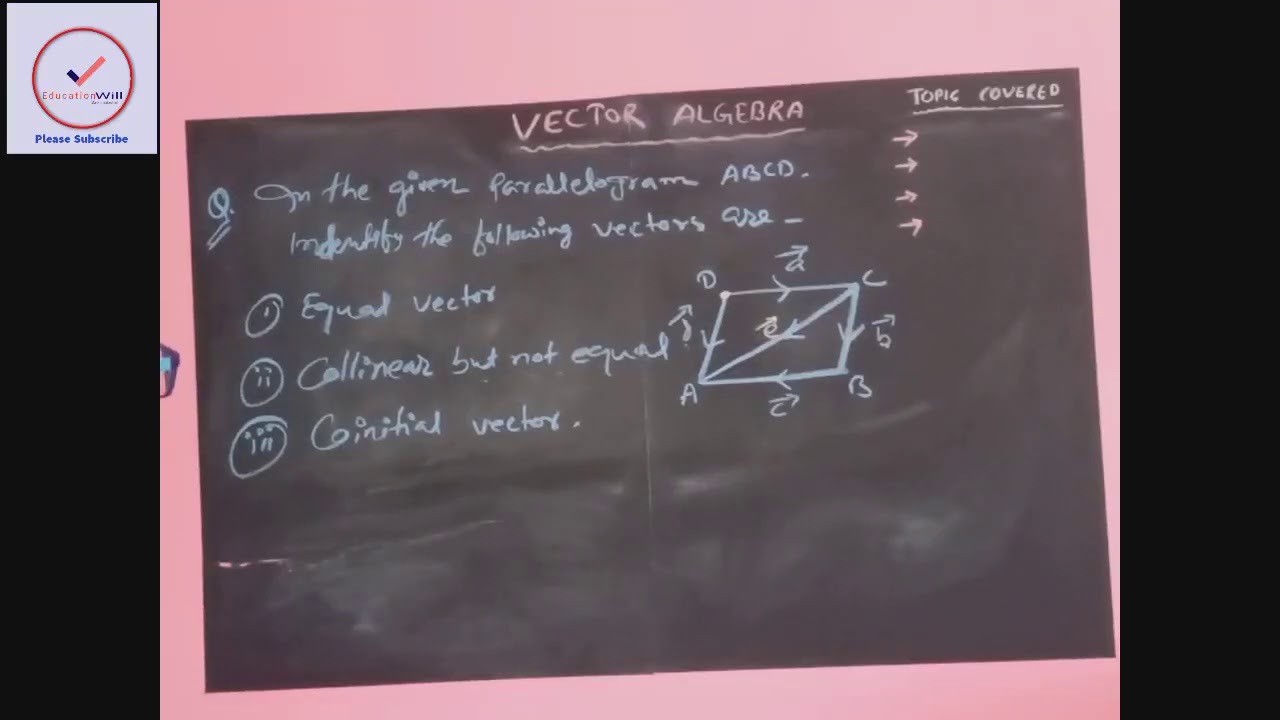 EducationWill
Please Subscribe
VECTOR ALGEBRA
TOPIC COVERED
Q. In the given parallelogram ABCD.
Indentify the following vectors are –
i) Equal vector
ii) Collinear but not equal
iii) Coinitial vector.
D a C
d e b
A c B